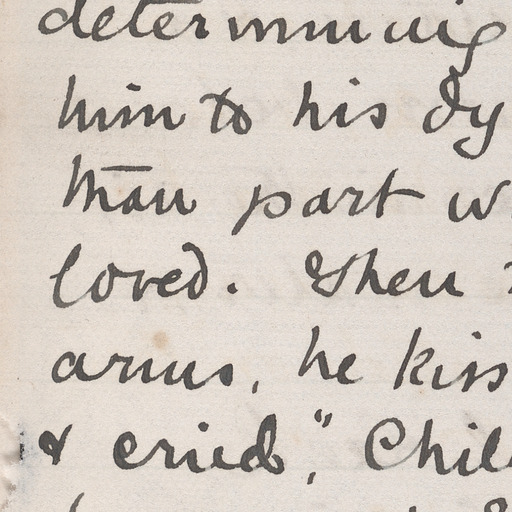 determining
him to his dy
than part w
loved. Then
arms, he kiss
& cried," Chil